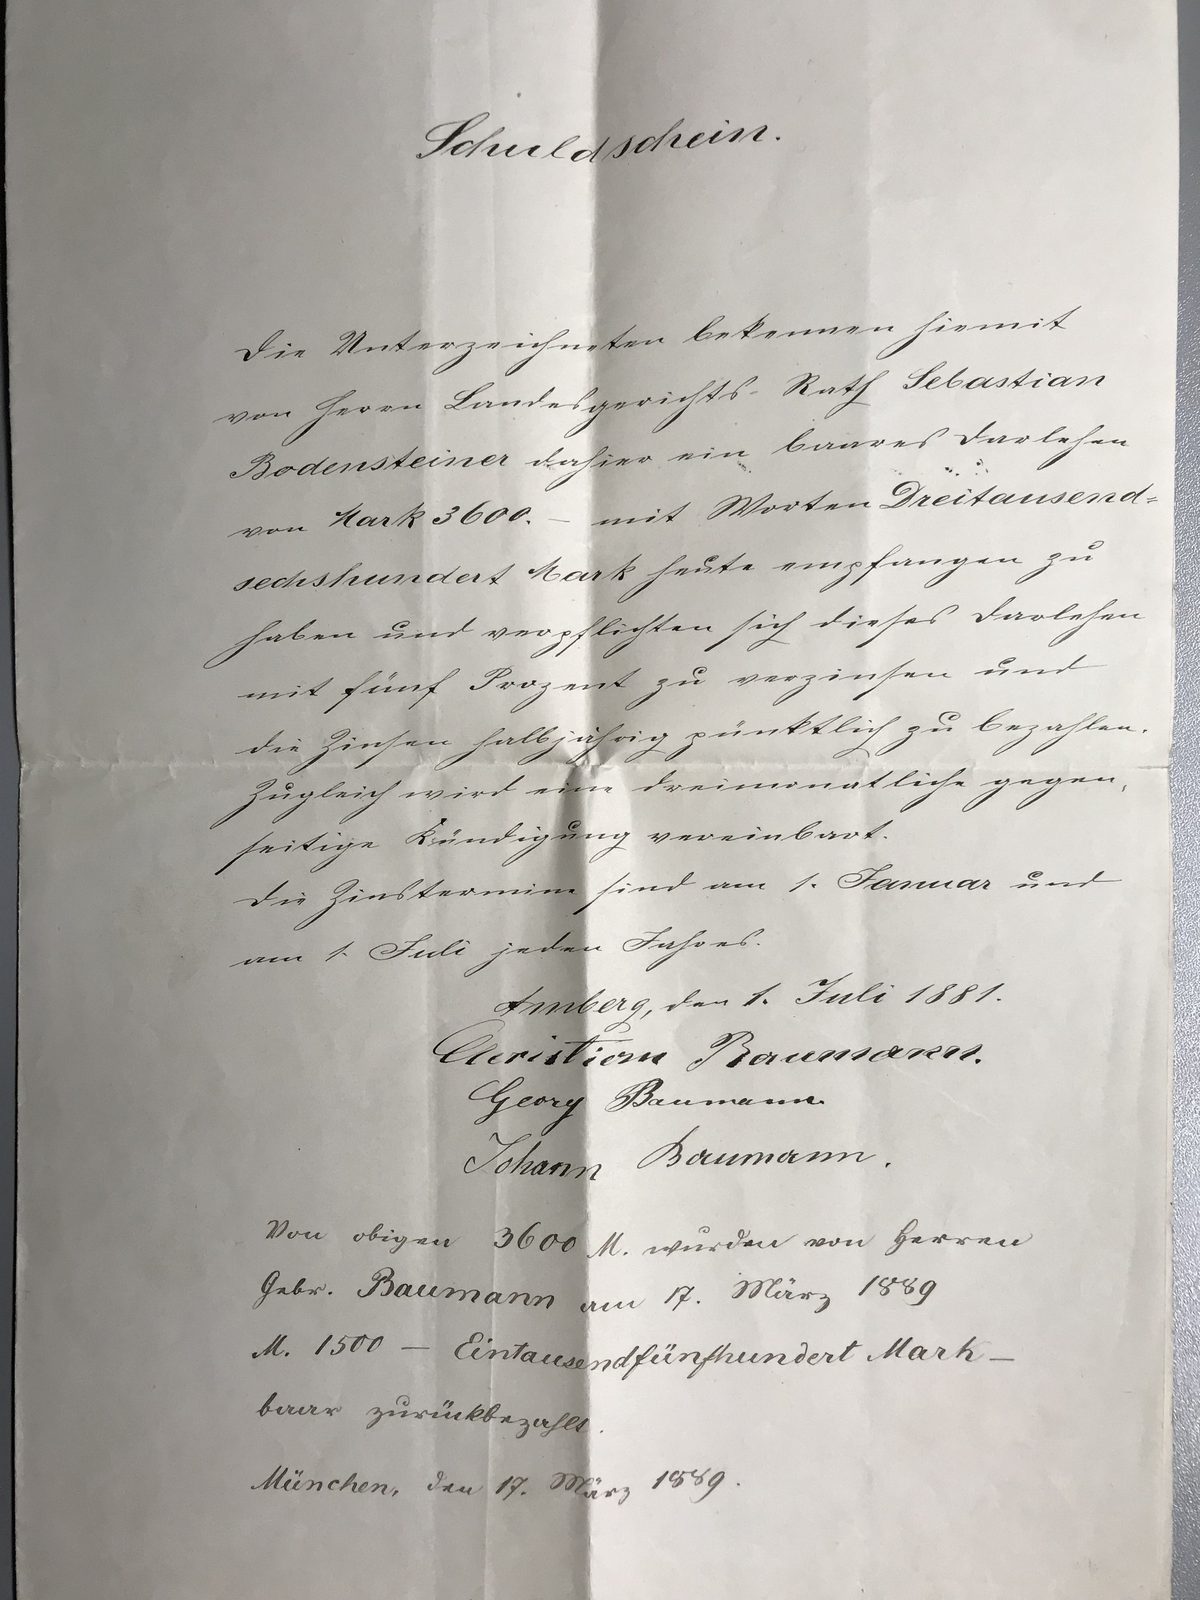 Schuldschein.
Die Unterzeichneten bekennen hiemit
von Herrn Landesgerichts-Rath Sebastian
Bodensteiner dahier ein baares Darlehen
von Mark 3600. – mit Worten Dreitausend=
sechshundert Mark heute empfangen zu
haben und verpflichten sich dieses Darlehen
mit fünf Prozent zu verzinsen und
die Zinsen halbjährig pünktlich zu bezahlen.
Zugleich wird eine dreimonatliche gegen,
seitige Kündigung vereinbart.
Die Zinstermine sind am 1. Januar und
am 1. Juli jeden Jahres.
Amberg, den 1. Juli 1881.
Christian Baumann.
Georg Baumann
Johann Baumann.
Von obigen 3600 M. wurden von Herren
Gebr. Baumann am 17. März 1889
M. 1500 – Eintausendfünfhundert Mark –
baar zurückbezahlt.
München, den 17. März 1889.